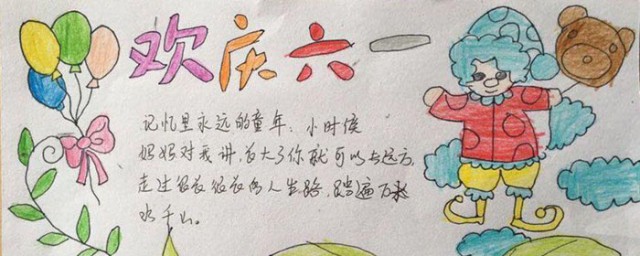 欢庆六一
记忆里永远的童年，小时候
妈妈对我讲，长大了你就可以去远方，
走过很长很长的人生路，踏遍万水
水千山。